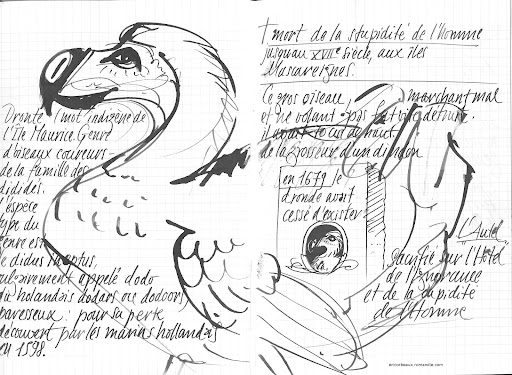 Dronte (mot indigène de
l'île Maurice Genre
d'oiseaux coureurs -
de la famille des
dididés.
l'espèce
type du
genre est
le didus ineptus,
vulgairement appelé dodo
du holandais dodars ou dodoors
paresseux : pour sa perte
découvert par les marins hollandais
en 1598.
† mort de la stupidité de l'homme
jusqu'au XVIIe siècle, aux îles
Mascareignes.
Ce gros oiseau, marchant mal
et ne volant pas fut vite détruit.
il avait le cul en haut
de la grosseur d'un dindon
en 1679 le
dronde avait
cessé d'exister
"L'Autel"
sacrifié sur l'Hôtel
de l'Ignorance
et de la stupidité
de l'Homme